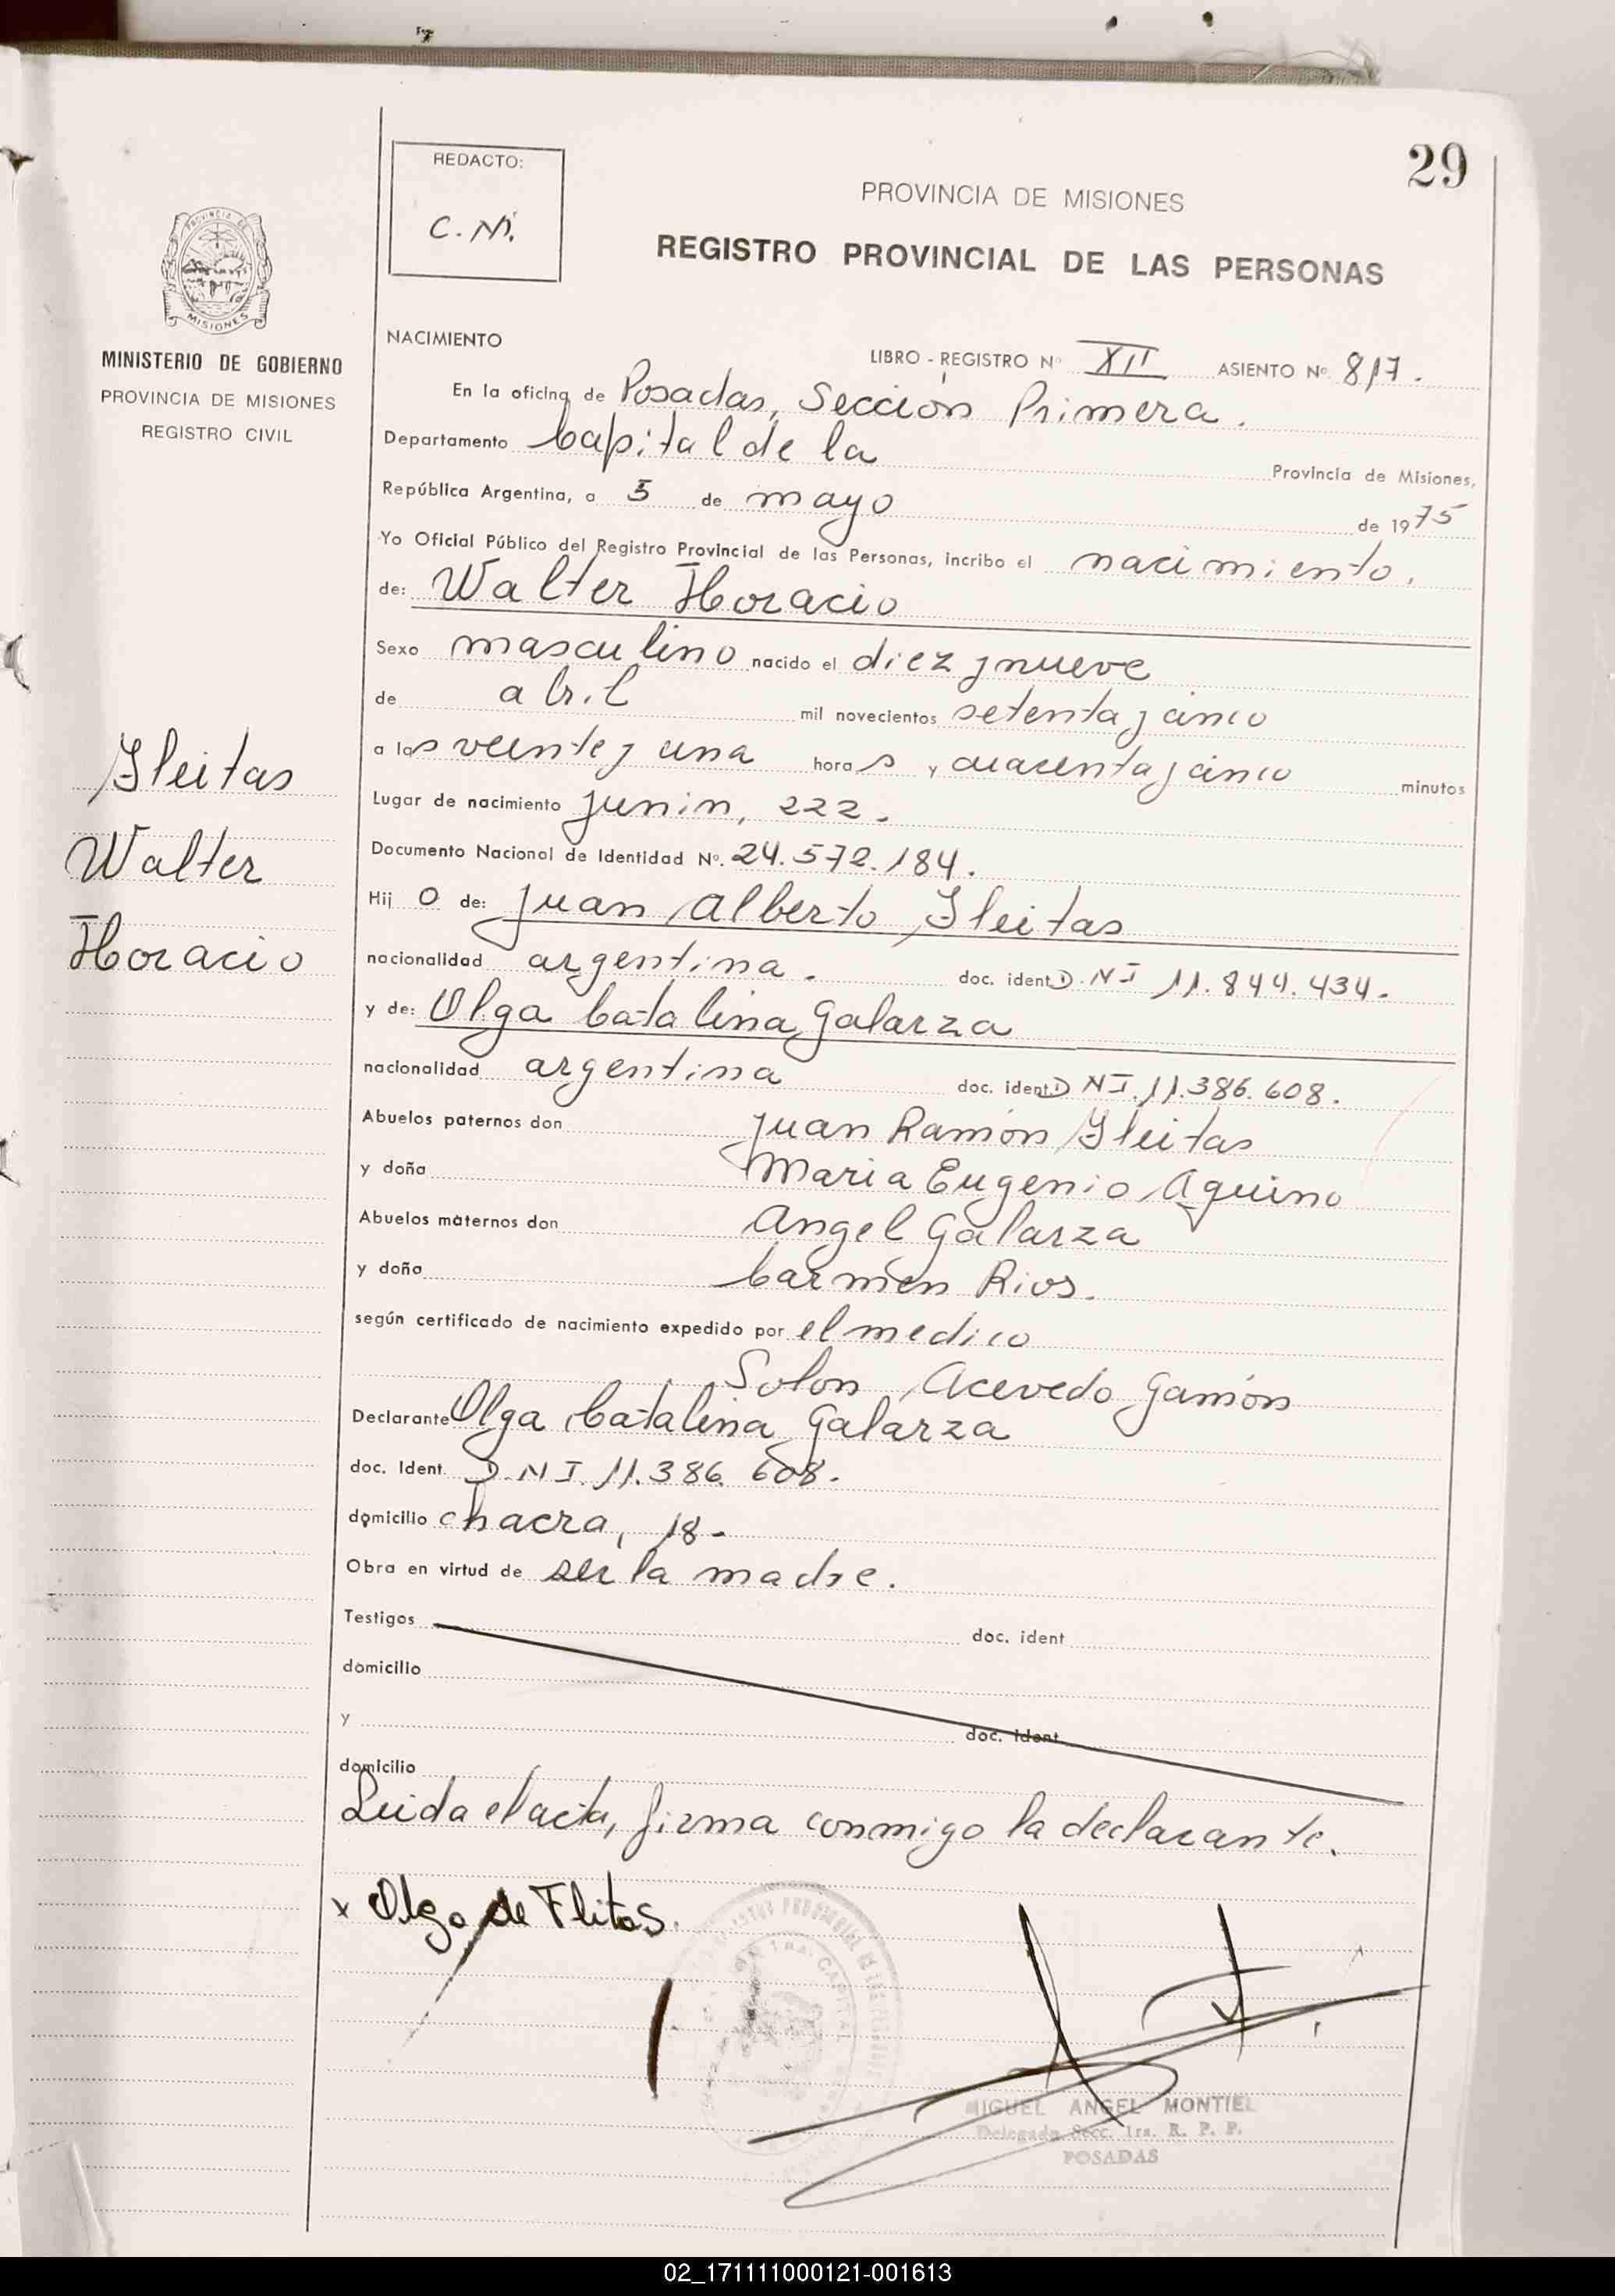 29
REDACTO:
C. M.
PROVINCIA DE MISIONES
REGISTRO PROVINCIAL DE LAS PERSONAS
PROVINCIA DE
MISIONES
MINISTERIO DE GOBIERNO
PROVINCIA DE MISIONES
REGISTRO CIVIL
NACIMIENTO
LIBRO - REGISTRO Nº XII ASIENTO Nº 817.
En la oficina de Posadas, Sección Primera.
Departamento Capital de la Provincia de Misiones,
República Argentina, a 5 de mayo de 1975
Yo Oficial Público del Registro Provincial de las Personas, incribo el nacimiento.
de: Walter Horacio
Sexo masculino nacido el diez y nueve
de abril mil novecientos setenta y cinco
a las veinte y una horas y cuarenta y cinco minutos
Lugar de nacimiento Junin, 222.
Documento Nacional de Identidad Nº. 24.572.184.
Hijo de: Juan Alberto Fleitas
nacionalidad argentina. doc. ident D.N I 11.844.434.
y de: Olga Catalina Galarza
nacionalidad argentina doc. ident D N I. 11.386.608.
Abuelos paternos don Juan Ramón Fleitas
y doña Maria Eugenio Aquino
Abuelos maternos don Angel Galarza
y doña Carmen Rios.
según certificado de nacimiento expedido por el medico
Solon Acevedo Gamón
Declarante Olga Catalina Galarza
doc. Ident D.N I. 11.386.608.
domicilio chacra, 18.
Obra en virtud de ser la madre.
Testigos doc. ident
domicilio
y doc. ident
domicilio
Leida el acta, firma conmigo la declarante.
Fleitas
Walter
Horacio
x Olga de Flitas.
MIGUEL ANGEL MONTIEL
Delegado Secc. 1ra. R. P. P.
POSADAS
02_171111000121-001613